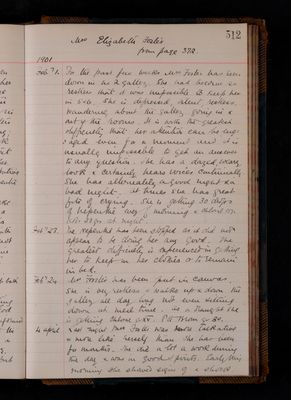 512
Mrs Elizabeth Foster
from page 372.
1901
Feb 7. For the past five weeks Mrs Foster has been
down in No 2 gallery. She had become so
restless that it was impossible to keep her
in bed. She is depressed, silent, restless,
wandering about the gallery, going in &
out of the rooms. It is with the greatest
difficulty that her attention can be eng-
aged even for a moment and it is
usually impossible to get an answer
to any question. She has a dazed, weary
look & certainly hears voices continually.
She has alternately a good night & a
bad night. At times she has great
fits of crying. She is getting 30 drops
of morning &
drops at night.
Feb 27. The has been stopped as it did not
appear to be doing her any good. The
greatest difficulty is experienced in getting
her to keep on her clothes or to remain
in bed.
Feb 24. Mrs Foster has been put in canvas.
She is very restless & walks up & down the
gallery all day long, not even sitting
down at meal time.
is getting
4 April Last night Mrs Foster was more talkative
& more like herself than she has been
for months. She did a lot of work during
the day & was in good spirits. Early this
morning she showed signs of a